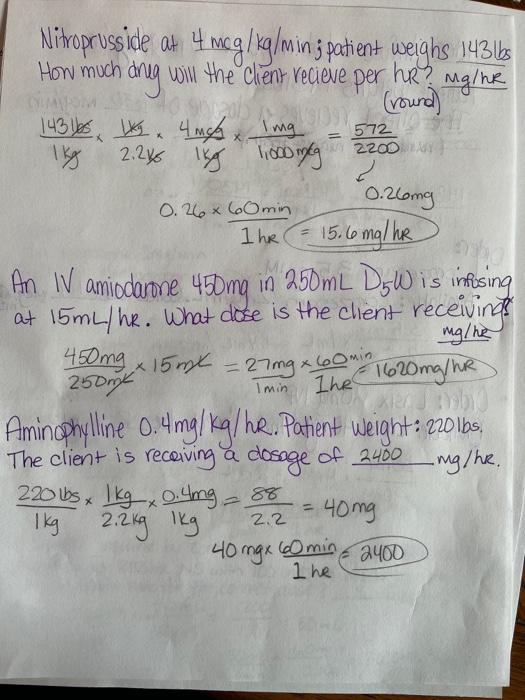 Nitroprusside at 4 mcg/kg/min; patient weighs 143 lbs
How much drug will the client recieve per hR? mg/hR
(round)
143 lbs/1 kg × 1 kg/2.2 lbs × 4 mcg/1 kg × 1 mg/1,000 mcg = 572/2200
0.26 mg
0.26 × 60 min/1 hR = 15.6 mg/hR
An IV amiodarone 450mg in 250mL D5W is infusing
at 15mL/hr. What dose is the client receiving?
mg/hr
450mg/250mL × 15 mL = 27mg/1 min × 60 min/1 hr = 1620mg/hR
Aminophylline 0.4mg/kg/hR. Patient Weight: 220 lbs.
The client is receiving a dosage of 2400 mg/hr.
220 lbs/1 kg × 1 kg/2.2 kg × 0.4mg/1 kg = 88/2.2 = 40 mg
40 mg × 60 min/1 hr = 2400